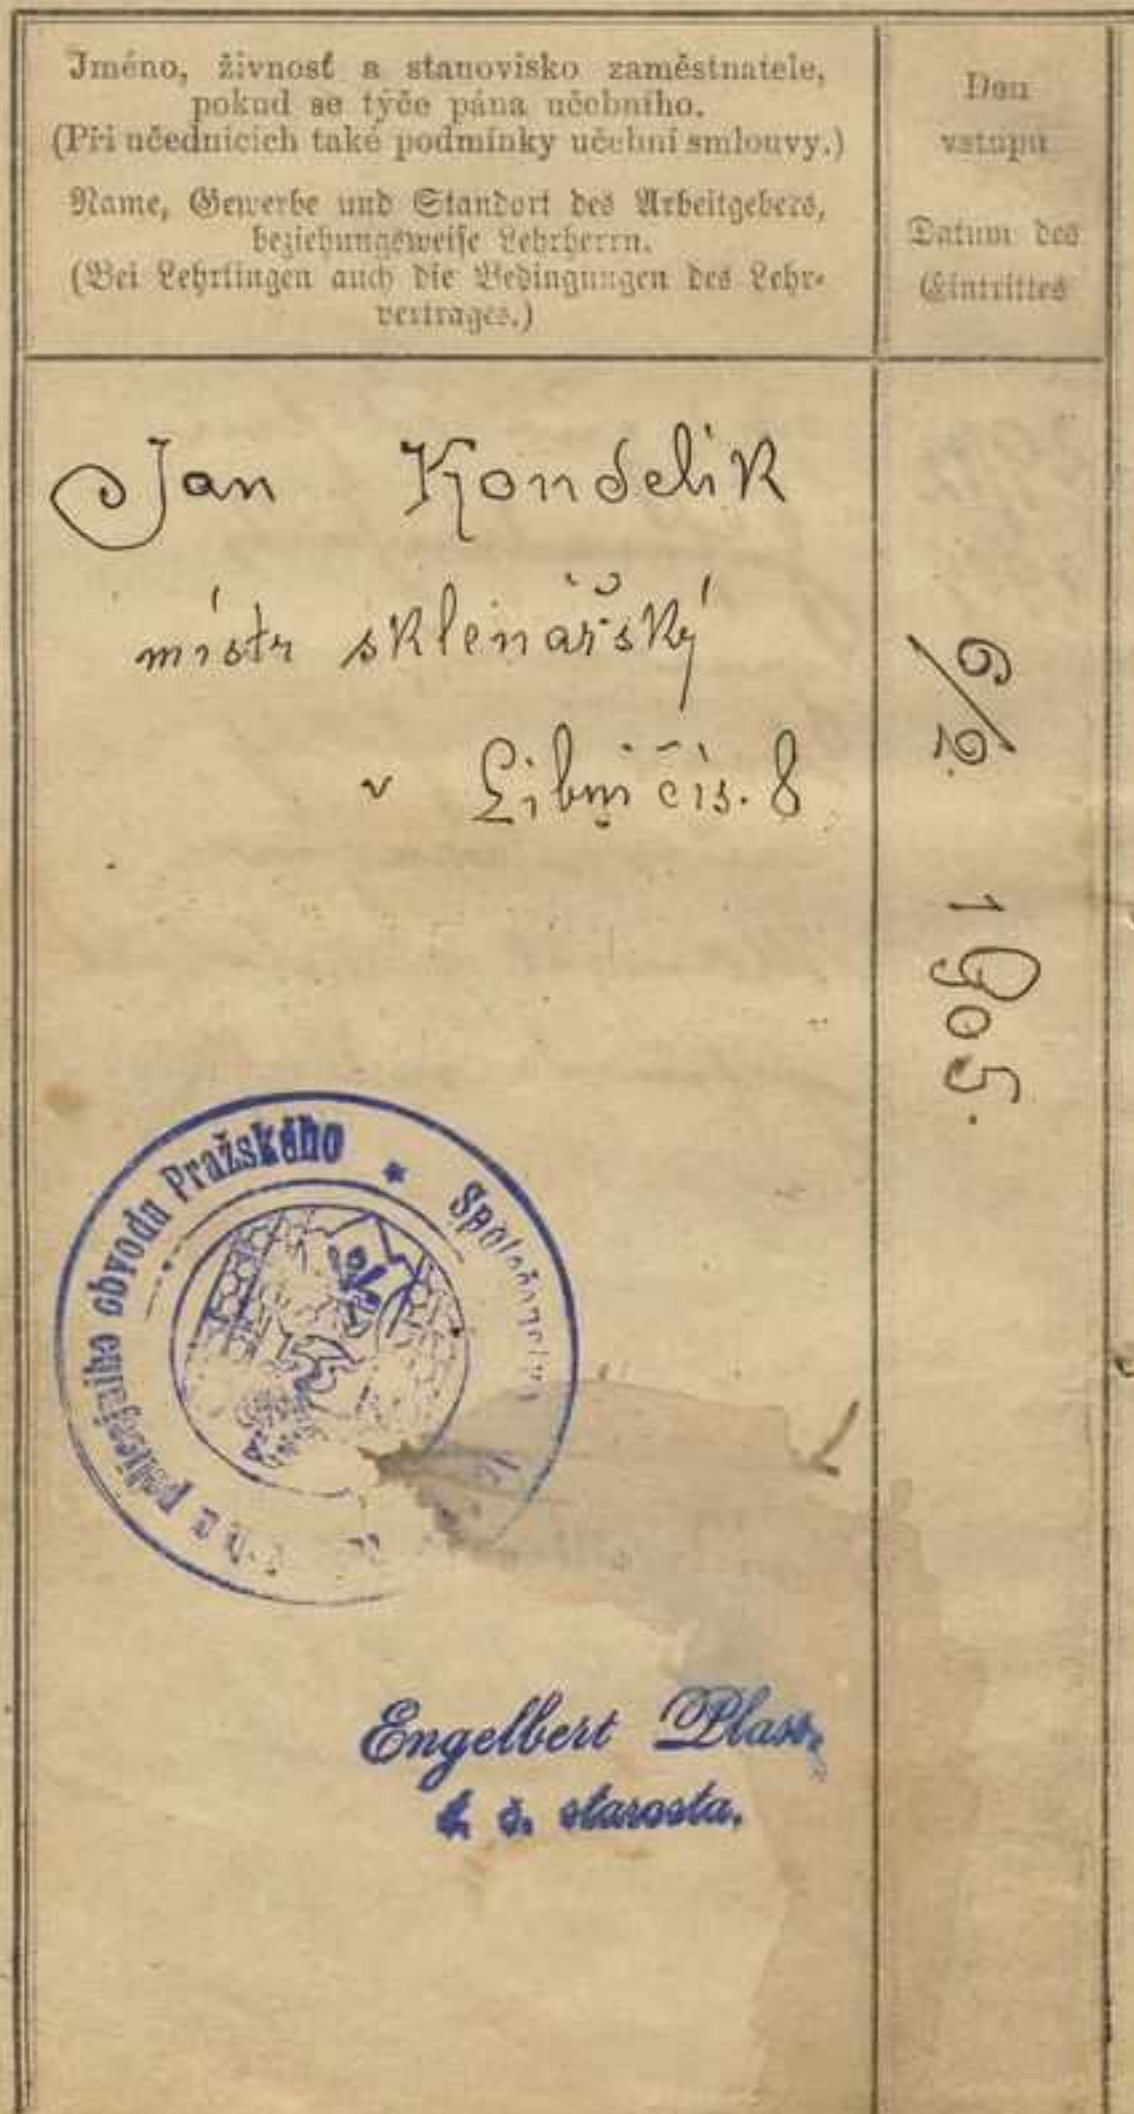 Jméno, živnosť a stanovisko zaměstnatele,
pokud se týče pána učebního.
(Při učednicích také podmínky učební smlouvy.)
Name, Gewerbe und Standort des Arbeitgebers,
beziehungsweise Lehrherrn.
(Bei Lehrlingen auch die Bedingungen des Lehr-
vertrages.)
Den
vstupu
Datum des
Eintrittes
Jan Kondelik
místr sklenářský
v Libni čís. 8
6/2. 1905.
policejního obvodu Pražského * Společenstvo
Engelbert Plass,
t. č. starosta.